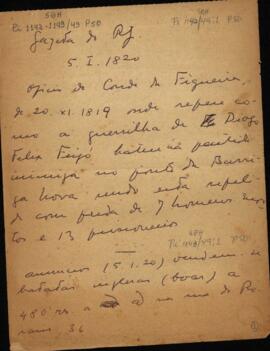 SGH
Pi 1142-1143/49 PSD
SGH
Pi 1142/49;2 PSD
Gazeta do RJ
5. I. 1820
Oficio do Conde da Figueira,
de 20. XI. 1819 onde refere co-
mo a guerrilha de Diogo
Felix Feijó bateu a partida
inimiga no ponto de Barri-
ga Nova sendo esta repeli-
da com perda de 7 homens mor-
tos e 13 prisioneiros
anuncios (5.1.20) vendem-se
batatas inglesas (boas) a
480 rs. a @ na rua do Ro-
36
1